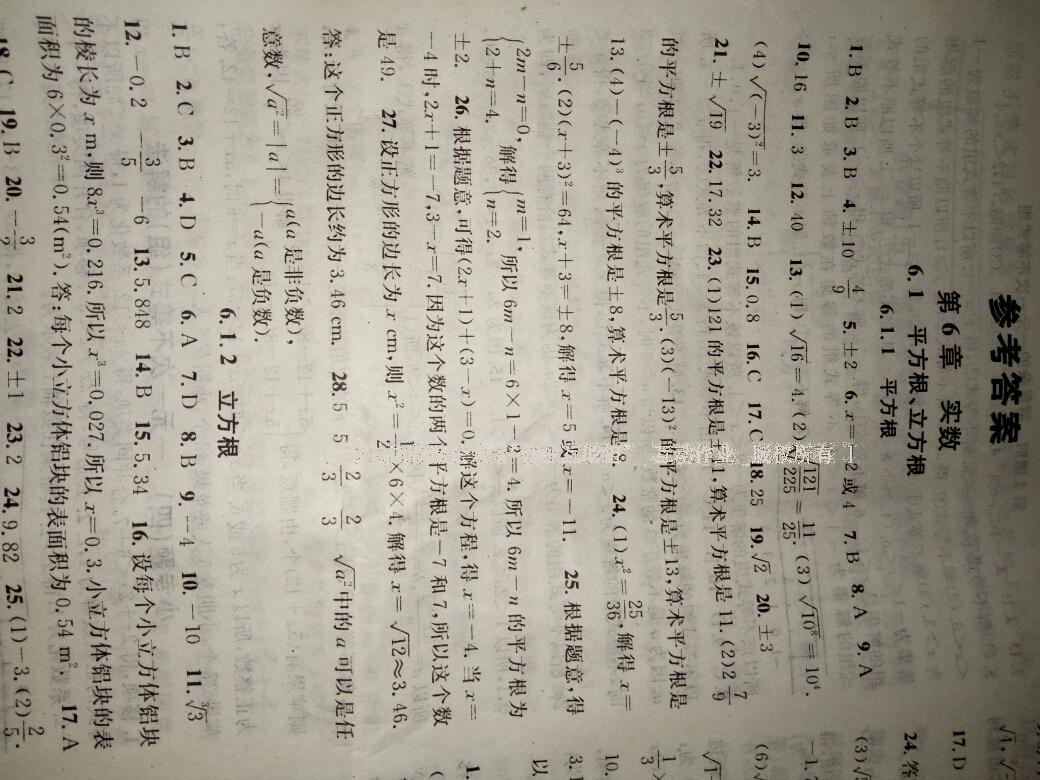 参考答案
第 6 章 实数
6.1 平方根、立方根
6.1.1 平方根
1. B 2. B 3. B 4. ±10 4/9 5. ±2 6. x=-2 或 4 7. B 8. A 9. A
10. 16 11. 3 12. 40 13. (1)√16=4. (2)√(121/225)=11/25. (3)√10⁸=10⁴.
(4)√(-3)²=3. 14. B 15. 0.8 16. C 17. C 18. 25 19. √2 20. ±3
21. ±√19 22. 17.32 23. (1)121 的平方根是±11,算术平方根是 11. (2)2 7/9
的平方根是±5/3,算术平方根是5/3. (3)(-13)² 的平方根是±13,算术平方根是
13. (4)-(-4)³ 的平方根是±8,算术平方根是8. 24. (1)x²=25/36,解得 x=
±5/6. (2)(x+3)²=64,x+3=±8,解得 x=5 或 x=-11. 25. 根据题意,得
{2m-n=0, 2+n=4. 解得{m=1, n=2. 所以 6m-n=6×1-2=4. 所以 6m-n 的平方根为
±2. 26. 根据题意,可得(2x+1)+(3-x)=0,解这个方程,得 x=-4. 当 x=
-4 时,2x+1=-7,3-x=7. 因为这个数的两个平方根是-7 和 7,所以这个数
是 49. 27. 设正方形的边长为 x cm,则 x²=1/2×6×4. 解得 x=√12≈3.46.
答:这个正方形的边长约为 3.46 cm. 28. 5 5 2/3 2/3 √a²中的 a 可以是任
意数,√a²=|a|={a(a 是非负数), -a(a 是负数).
6.1.2 立方根
1. B 2. C 3. B 4. D 5. C 6. A 7. D 8. B 9. -4 10. -10 11. ∛3
12. -0.2 -3/5 -6 13. 5.848 14. B 15. 5.34 16. 设每个小立方体铝块
的棱长为 x m,则 8x³=0.216,所以 x³=0.027,所以 x=0.3. 小立方体铝块的表
面积为 6×0.3²=0.54(m²). 答:每个小立方体铝块的表面积为 0.54 m². 17. A
18. C 19. B 20. -3/2 21. 2 22. ±1 23. 2 24. 9.82 25. (1)-3. (2)2/5.
17. D
24. 答
(3)√
-1.
(6)√
10.
3. 1
以
1.